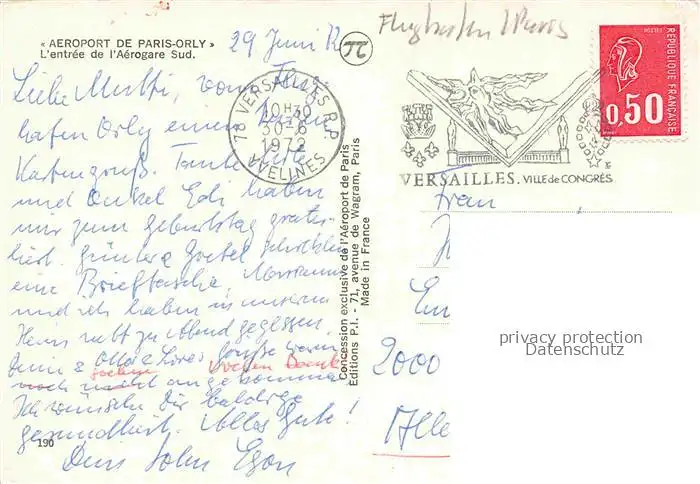 « AEROPORT DE PARIS-ORLY »
L'entrée de l'Aérogare Sud.
29 Juni 72
Flughafen / Paris
Liebe Mutti, vom Flug
hafen Orly einen lieben
Kartengruß. Tante
und Onkel Edi haben
mir zum Geburtstag gratu-
liert. Günter
eine Brieftasche,
und ich haben in unserm
Heim nett zu Abend gegessen.
Otto Grüße waren
noch nicht angekommen
Ich wünsche Dir baldige
gesundheit. Alles Gute!
Dein Sohn Egon
190
78 VERSAILLES R.P.
10H30
30-6
1972
AVELINES
VERSAILLES. VILLE de CONGRÈS
REPUBLIQUE FRANÇAISE
0,50
Concession exclusive de l'Aéroport de Paris
Editions P.I. - 71, avenue de Wagram, Paris
Made in France
Frau
2000
Alle
privacy protection
Datenschutz